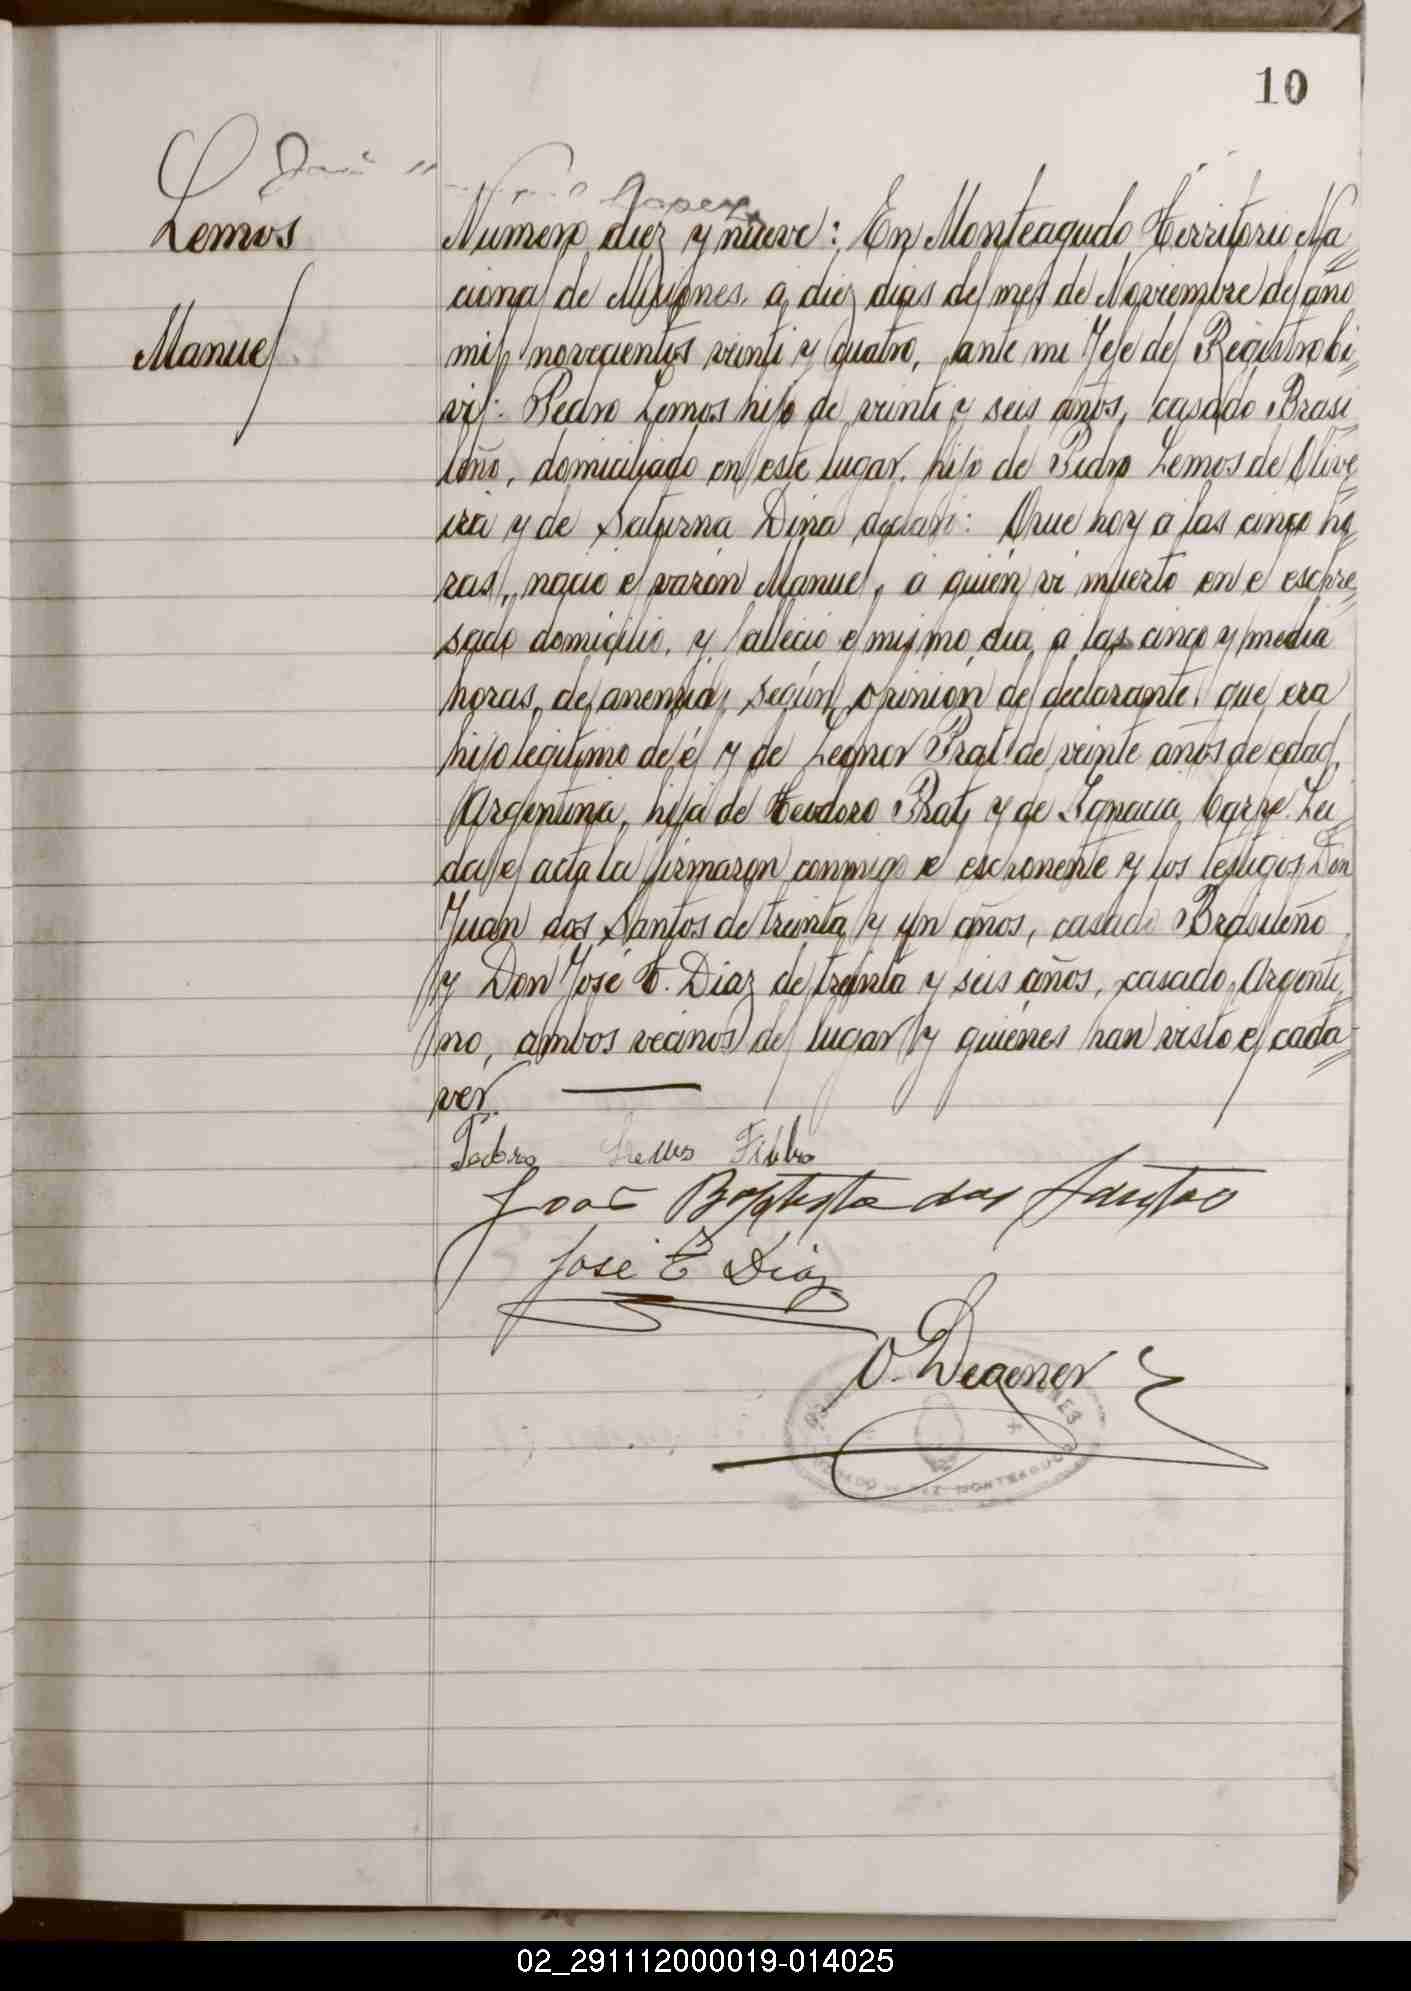 10
Lopez
Lemos
Manuel
Número diez y nueve: En Monteagudo Territorio Na=
cional de Misiones, a diez dias del mes de Noviembre del año
mil novecientos veinti y cuatro, ante mi Jefe del Registro Ci=
vil: Pedro Lemos hijo de veinti y seis años, casado Brasi=
leño, domiciliado en este lugar, hijo de Pedro Lemos de Olive
ira y de Saturna Dina declaró: Que hoy a las cinco ho=
ras, nació el varón Manuel, a quién vi muerto en el escpre=
sado domicilio, y falleció el mismo dia a las cinco y media
horas, de anemia, según opinión del declarante, que era
hijo legitimo de él y de Leonor Prat de veinte años de edad,
Argentina, hija de Teodoro Prat y de Ignacia Carpe. Lei=
da el acta la firmaron conmigo el esponente y los testigos Don
Juan dos Santos de treinta y un años, casado Brasileño
y Don José E. Diaz de treinta y seis años, casado, Argenti=
no, ambos vecinos del lugar y quiénes han visto el cada=
ver.
Pedro Lemos Filho
João Baptista dos Santos
José E Diaz
O. Degener
MONTEAGUDO
02_291112000019-014025